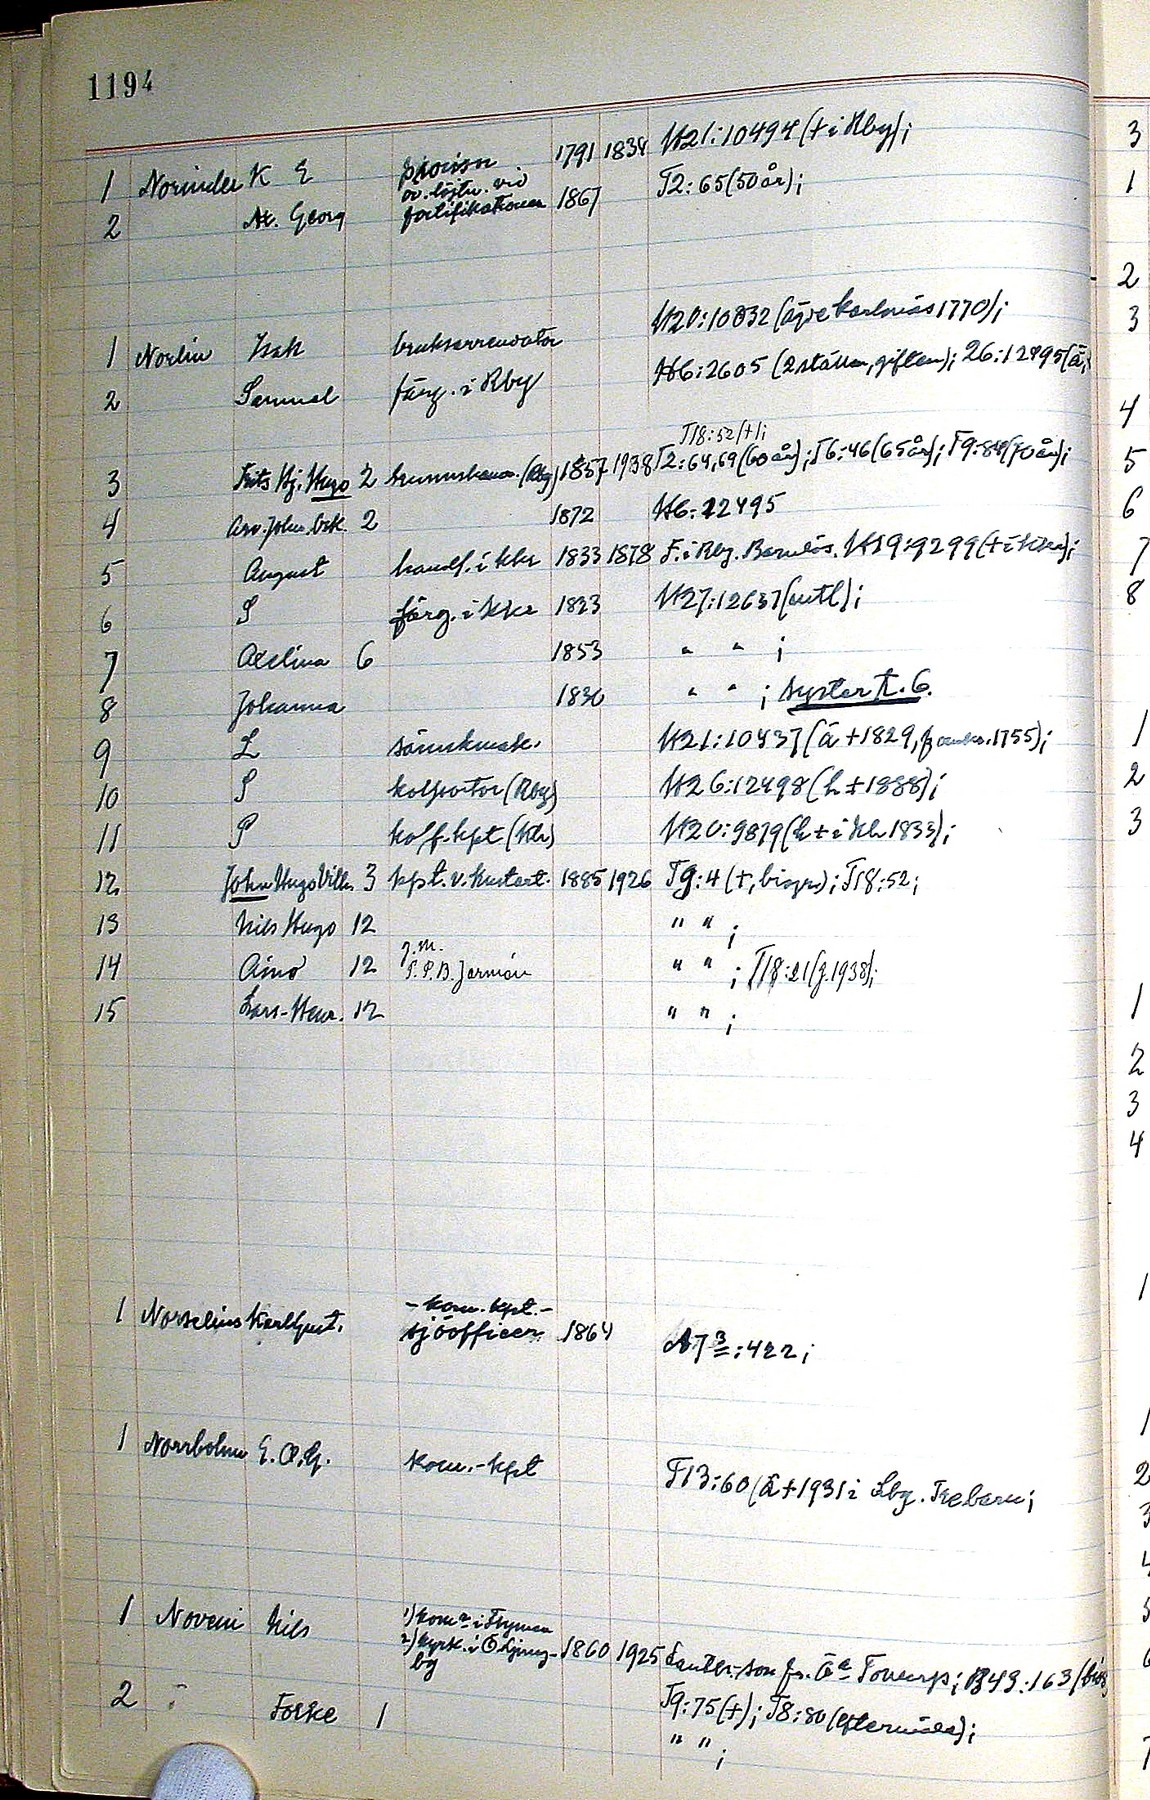 1194
1 Norinder K E provisor 1791 1834 H21:10494 († i Rby);
2 Ax. Georg öv. löjtn. vid fortifikationen 1867 T2:65 (50 år);
1 Norlin Isak bruksarrendator H20:10832 (ägde Karlsnäs 1770);
2 Samuel färg. i Rby H6:2605 (2 ställen, giften); 26:12495 (ä,
T18:52 (†);
3 Frits Hj. Hugo 2 brunnskam. (Rby) 1857 1938 T2:64,69 (60 år); T6:46 (65 år); T9:84 (70 år);
4 Arv. John. Osk. 2 1872 H6:22495
5 August handl. i Kkr 1833 1878 F. i Rby. Barnlös. H19:9299 († i Kkr);
6 S färg. i Kkr 1823 H27:12637 (utl);
7 Axelina 6 1853 " " ;
8 Johanna 1830 " " ; syster t. 6.
9 L sämskmak. H21:10437 (ä †1829, f. 1755);
10 S kolportör (Rby) H26:12498 (h †1888);
11 P koff.kpt (Klr) H20:9879 (h † i Kh 1833);
12 John Hugo Vilh. 3 kpt. v. kustart. 1885 1926 T9:4 (†, biogr); T18:52;
13 Nils Hugo 12 " " ;
14 Aino 12 g.m. S.P.B. Jarmán " " ; T18:21 (g. 1938);
15 Lars-Henr. 12 " " ;
1 Norselius Karl Gust. -kom. kpt.- sjöofficer 1864 A7 3:422;
1 Norrbohm E. O. G. kom.-kpt T13:60 (ä †1931 i Lbg.
1 Noveni Nils 1) kom. i
2) kyrk. i Ö. Ljung-
by 1860 1925 Lantbr.-son fr. Ö:a Torup; B43:163 (
T9:75 (†); T8:80 (eftermäle);
2 " Torke 1 " " ;
3
1
2
3
4
5
6
7
8
1
2
3
1
2
3
4
1
1
2
3
4
5
6
7